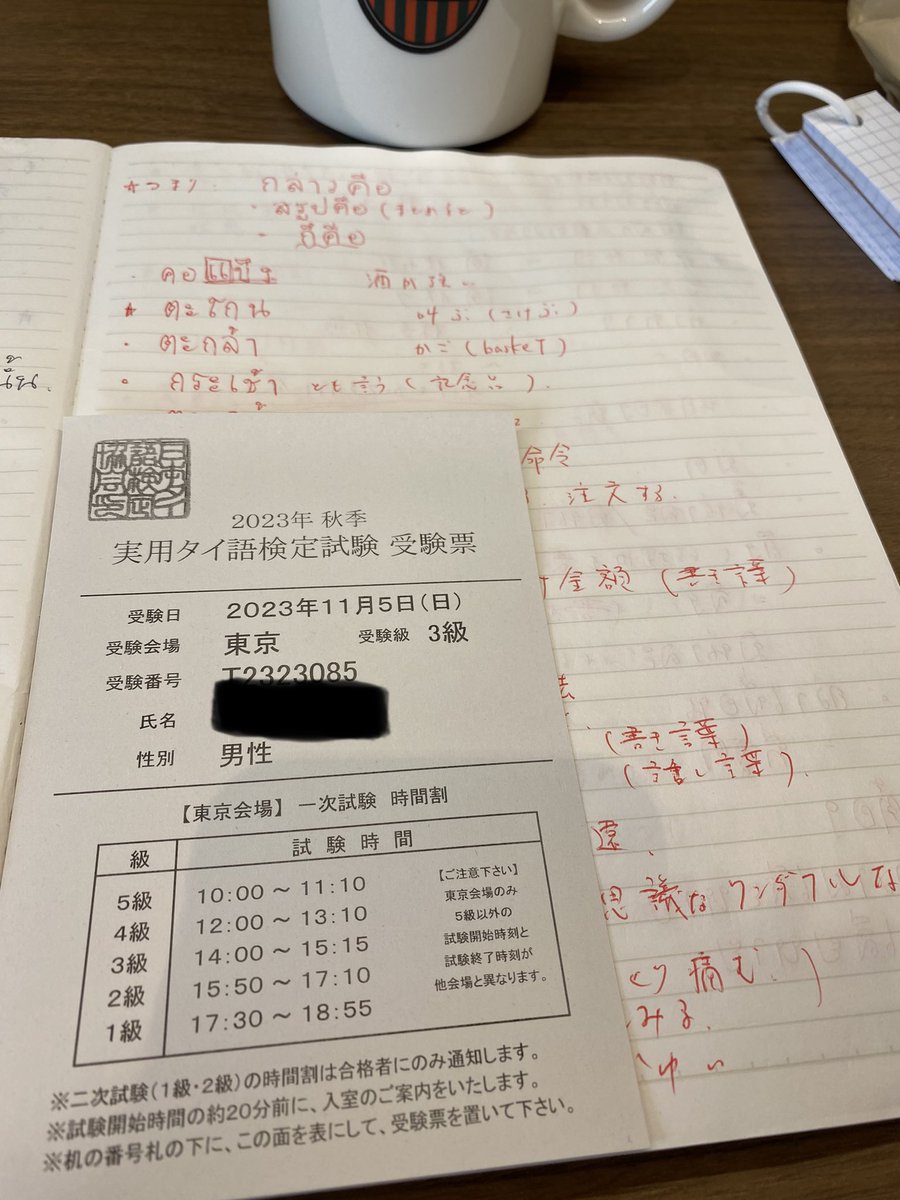 ☆つまり. กล่าวคือ
・สรุปคือ (まとめると)
・ก็คือ
・คอแข็ง 酒が強い
★ ตะโกน 叫ぶ (さけぶ)
・ตะกร้า かご (basket)
・กระเช้า とも言う (記念品).
命令
注文する.
金額 (書き言葉)
(書き言葉)
(話し言葉).
遠
思議な ワンダフルな
痛む.)
みる.
ゆい
日本タイ語検定協会印
2023年 秋季
実用タイ語検定試験 受験票
受験日 2023年11月5日(日)
受験会場 東京 受験級 3級
受験番号 T2323085
氏名
性別 男性
【東京会場】 一次試験 時間割
級 試験時間
5級 10:00 ~ 11:10
4級 12:00 ~ 13:10
3級 14:00 ~ 15:15
2級 15:50 ~ 17:10
1級 17:30 ~ 18:55
【ご注意下さい】
東京会場のみ
5級以外の
試験開始時刻と
試験終了時刻が
他会場と異なります。
※二次試験(1級・2級)の時間割は合格者にのみ通知します。
※試験開始時間の約20分前に、入室のご案内をいたします。
※机の番号札の下に、この面を表にして、受験票を置いて下さい。